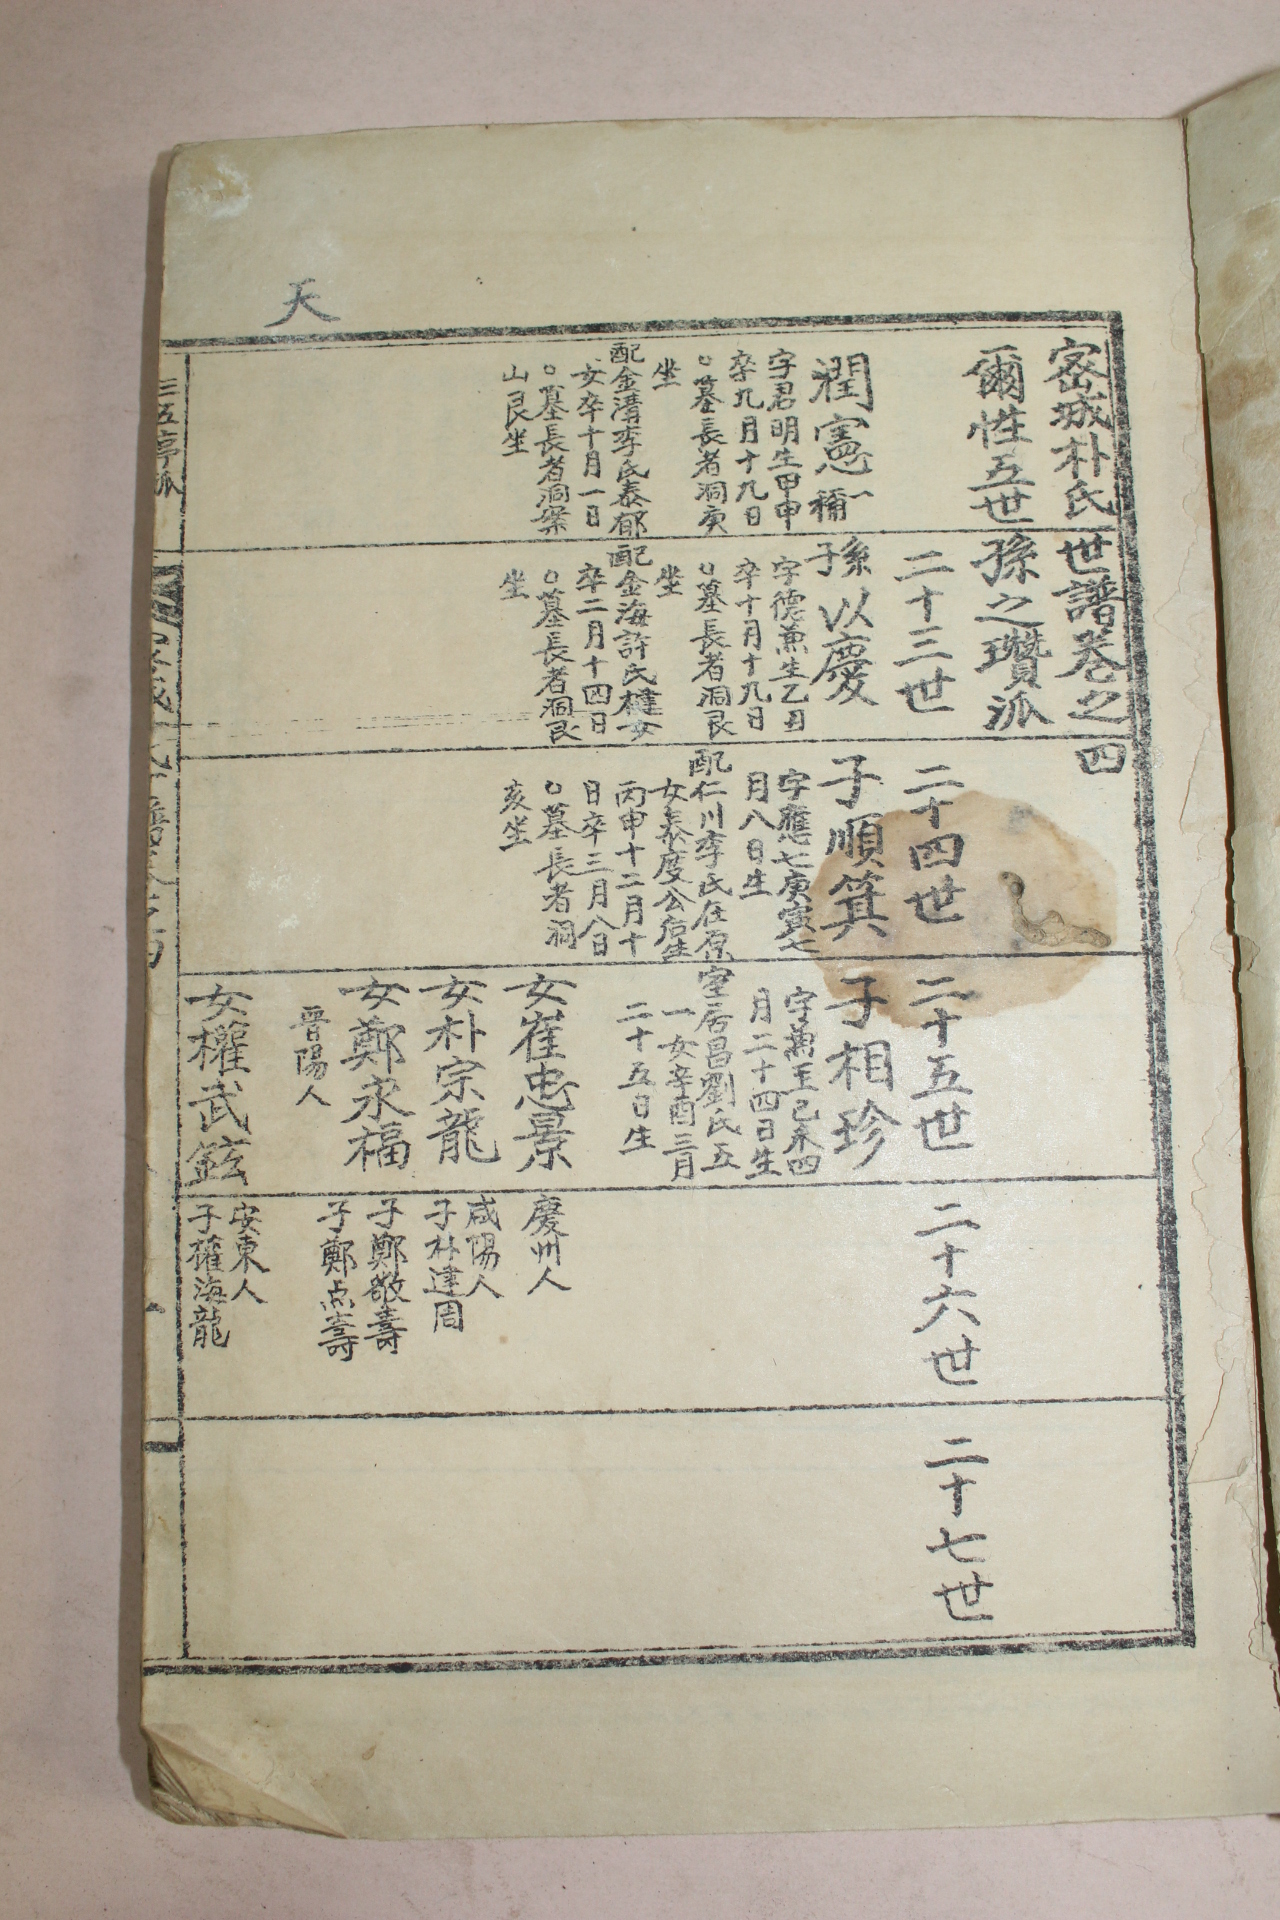 天
密城朴氏世譜卷之四
爾性五世孫之瓚派
二十三世
二十四世
二十五世
二十六世
二十七世
潤憲
一
字君明生甲申
卒九月十九日
墓長者洞庚
坐
配金溝李氏泰郁
女卒十月一日
墓長者洞案
山艮坐
子
以慶
字德兼生乙丑
卒十月十九日
墓長者洞艮
坐
配金海許氏楗女
卒二月十四日
墓長者洞艮
坐
子順箕
字應七庚寅七
月八日生
配仁川李氏在原
女泰度公后生
丙申十二月十
日卒三月八日
墓長者洞
亥坐
子相珍
字萬玉己未四
月二十四日生
室居昌劉氏五
一女辛酉三月
二十五日生
女崔忠景
慶州人
女朴宗龍
咸陽人
子朴達周
女鄭永福
晋陽人
子鄭敬壽
子鄭点壽
女權武鉉
安東人
子權海龍
三五亭派